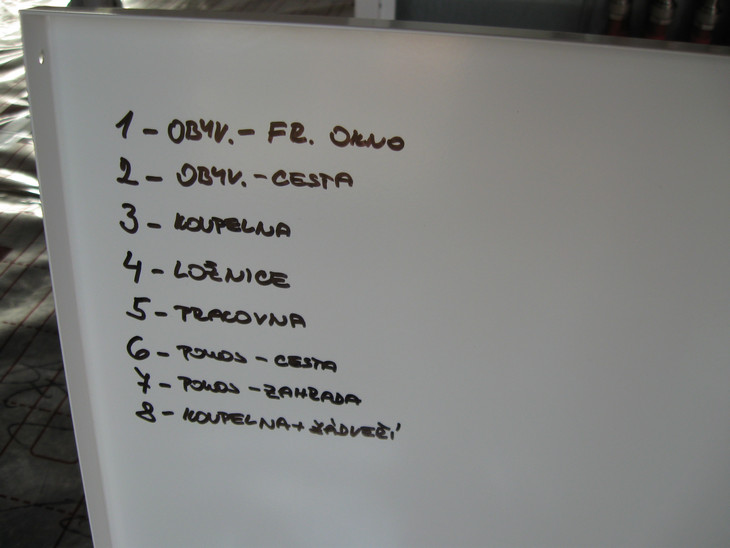 1 - OBÝV. - FR. OKNO
2 - OBÝV. - CESTA
3 - KOUPELNA
4 - LOŽNICE
5 - PRACOVNA
6 - POKOJ - CESTA
7 - POKOJ - ZAHRADA
8 - KOUPELNA + ZÁDVEŘÍ